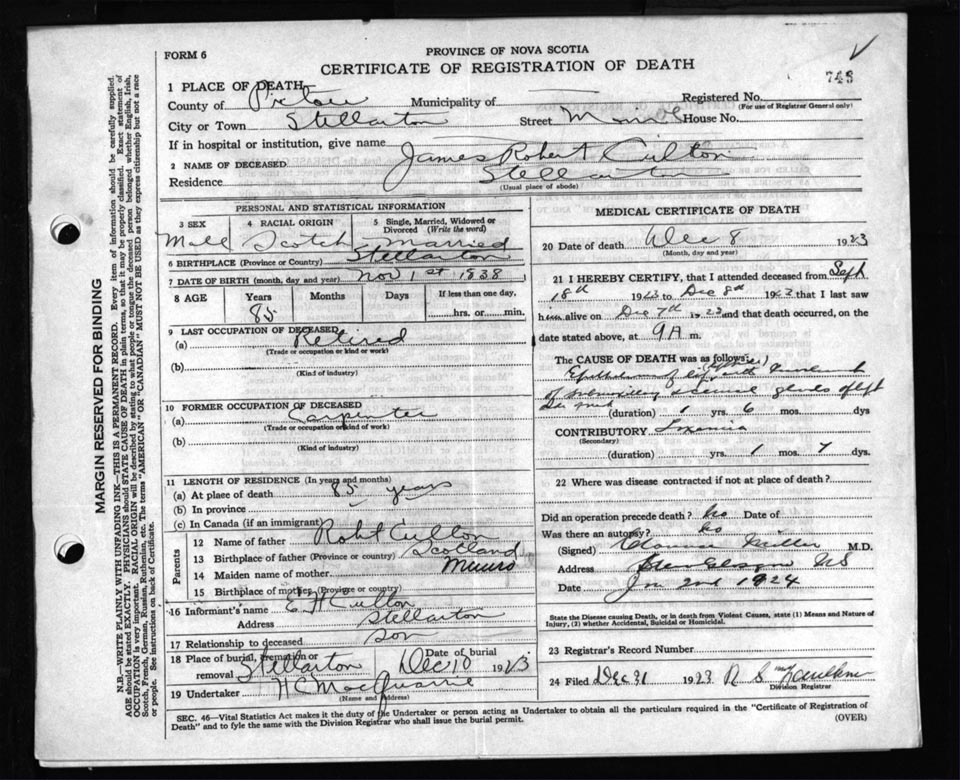 FORM 6
PROVINCE OF NOVA SCOTIA
CERTIFICATE OF REGISTRATION OF DEATH
743
1 PLACE OF DEATH
County of Pictou Municipality of Registered No.
(For use of Registrar General only)
City or Town Stellarton Street House No.
If in hospital or institution, give name
2 NAME OF DECEASED James Robert Culton
Residence Stellarton
(Usual place of abode)
MARGIN RESERVED FOR BINDING
N.B.—WRITE PLAINLY WITH UNFADING INK—THIS IS A PERMANENT RECORD. Every item of information should be carefully supplied.
AGE should be stated EXACTLY. PHYSICIANS should STATE CAUSE OF DEATH in plain terms, so that it may be properly classified. Exact statement of
OCCUPATION is very important. RACIAL ORIGIN will be described by stating to what people or tongue the deceased person belonged whether English, Irish,
Scotch, French, German, Russian, Ruthenian, etc. The terms "AMERICAN" OR "CANADIAN" MUST NOT BE USED as they express citizenship but not a race
or people. See instructions on back of Certificate.
PERSONAL AND STATISTICAL INFORMATION
3 SEX 4 RACIAL ORIGIN 5 Single, Married, Widowed or
Divorced (Write the word)
Male Scotch Married
6 BIRTHPLACE (Province or Country) Stellarton
7 DATE OF BIRTH (month, day and year) Nov 1st 1838
8 AGE Years Months Days If less than one day,
85 hrs. or min.
9 LAST OCCUPATION OF DECEASED
(a) Retired
(Trade or occupation or kind of work)
(b)
(Kind of industry)
10 FORMER OCCUPATION OF DECEASED
(a) Carpenter
(Trade or occupation or kind of work)
(b)
(Kind of industry)
11 LENGTH OF RESIDENCE (In years and months)
(a) At place of death 85 years
(b) In province
(c) In Canada (if an immigrant)
Parents
12 Name of father Robt Culton
13 Birthplace of father (Province or country) Scotland
14 Maiden name of mother Munro
15 Birthplace of mother (Province or country)
16 Informant's name E H Culton
Address Stellarton
17 Relationship to deceased Son
18 Place of burial, cremation or removal Stellarton Date of burial Dec 10 1923
19 Undertaker H C MacQuarrie
(Name and Address)
MEDICAL CERTIFICATE OF DEATH
20 Date of death Dec 8 1923
(Month, day and year)
21 I HEREBY CERTIFY, that I attended deceased from Sept
18th 1923 to Dec 8th 1923 that I last saw
him alive on Dec 7th 1923 and that death occurred, on
date stated above, at 9 A m.
The CAUSE OF DEATH was as follows:
Epithelioma of lip with
of submaxillary glands of left
(duration) 1 yrs. 6 mos. dys
CONTRIBUTORY Toxemia
(Secondary)
(duration) yrs. 1 mos. 7 dys.
22 Where was disease contracted if not at place of death?
Did an operation precede death? No Date of
Was there an autopsy? No
(Signed) Clarence Miller M.D.
Address New Glasgow NS
Date Jan 2nd 1924
State the Disease causing Death, or in death from Violent Causes, state (1) Means and Nature of
Injury, (2) whether Accidental, Suicidal or Homicidal.
23 Registrar's Record Number
24 Filed Dec 31 1923 R S
Division Registrar
SEC. 46—Vital Statistics Act makes it the duty of the Undertaker or person acting as Undertaker to obtain all the particulars required in the "Certificate of Registration of
Death" and to fyle the same with the Division Registrar who shall issue the burial permit.
(OVER)